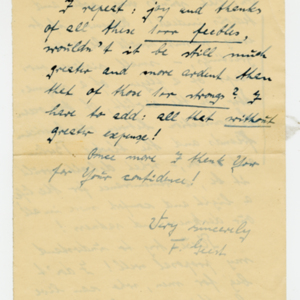 I repeat: joy and thanks
of all these 100 feebles,
wouldn't it be still much
greater and more ardent then
that of those 100 strongs? I
have to add: all that without
greater expense!
Once more I thank You
for Your confidence!
Very sincerely
F.